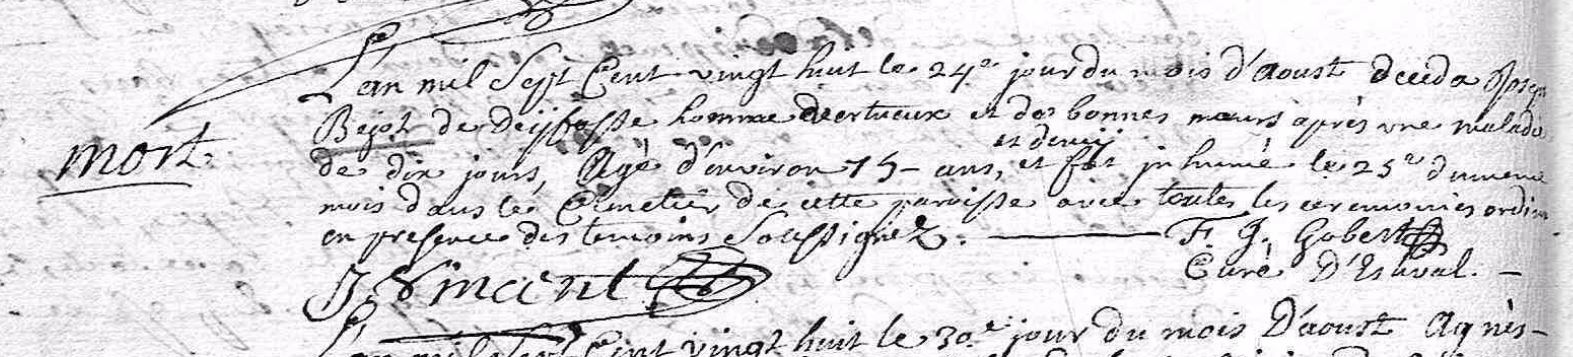 L'an mil Sept Cent vingt huit le 24e jour du mois d'aoust deceda Joseph
Bejot de homme vertueux et de bonnes mœurs après une maladie
mort
de dix jours, Agé d'environ 75 ans, et demij et fut inhumé le 25e du meme
mois dans le Cimetiér de cette paroisse avec toutes les ceremonies ordin
en presence des temoins Soussignez. F. J. Gobert
J. Vincent Curé D'Estival.
L'an mil Sept Cent vingt huit le 30e jour du mois D'aoust Agnès